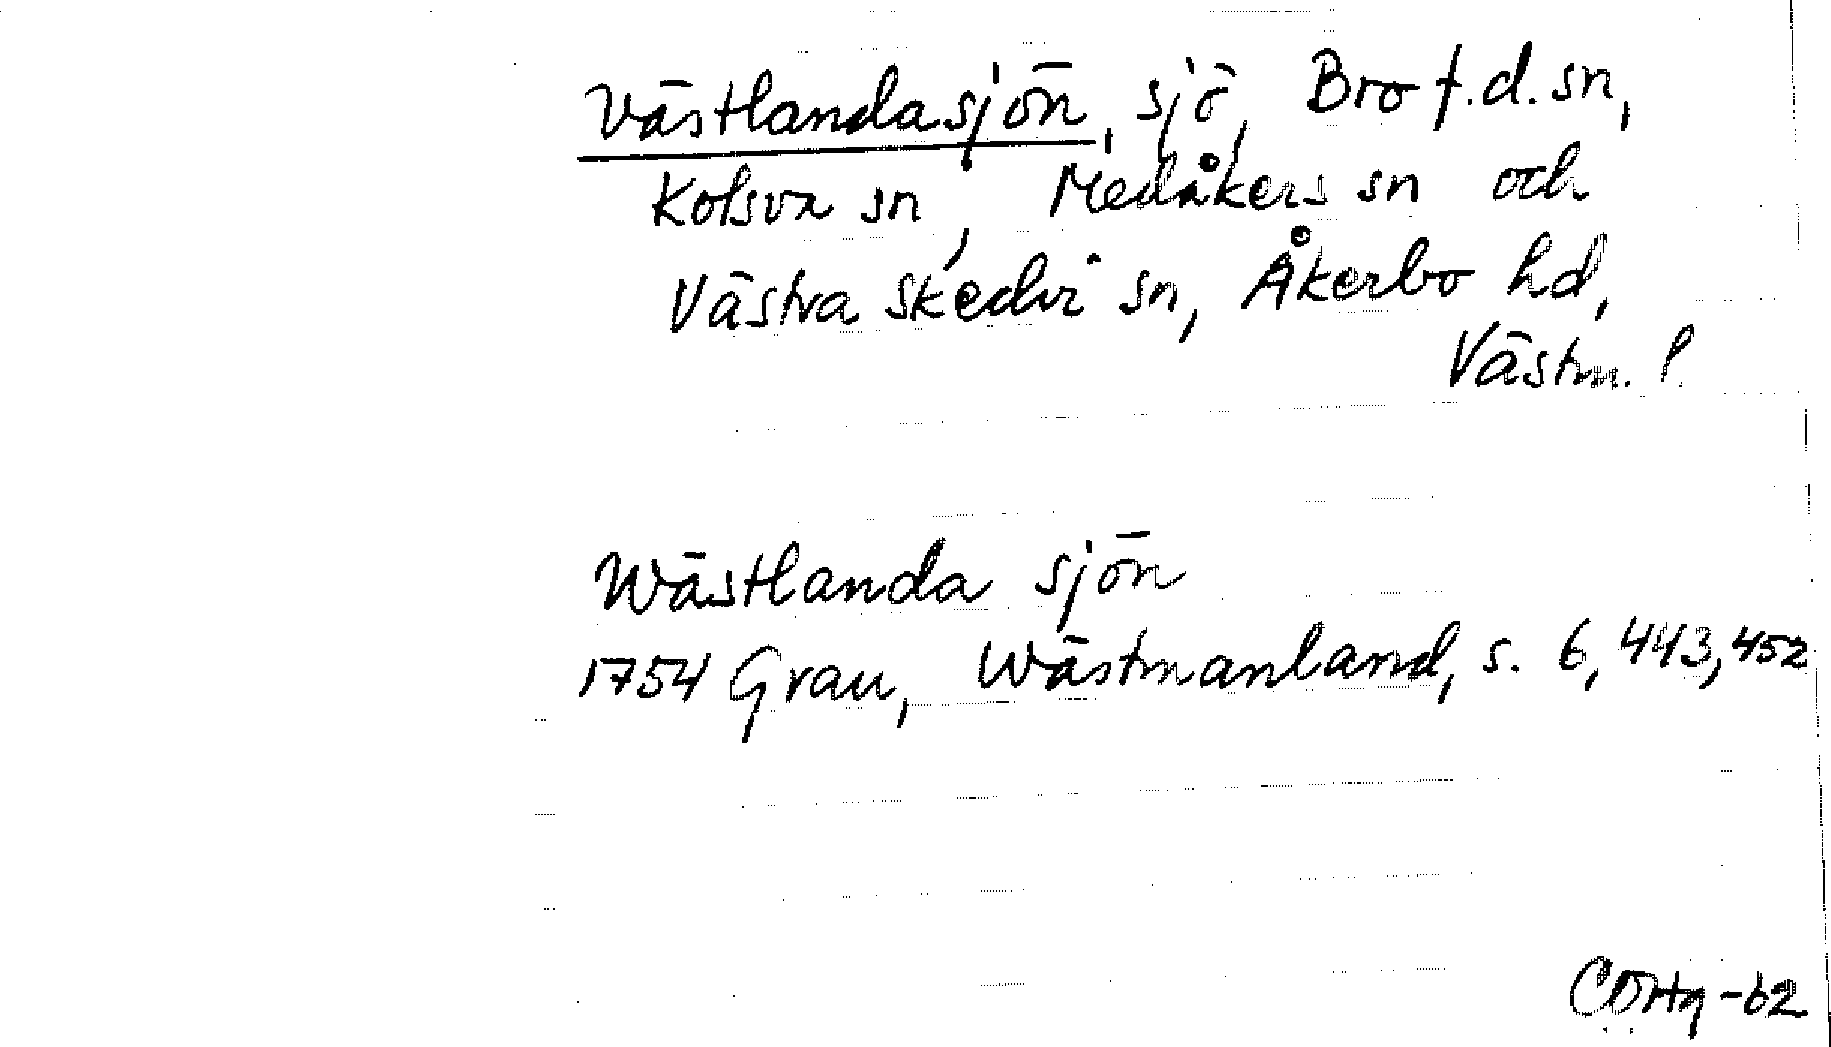 Västlandasjön, sjö, Bro f.d. sn,
Kolsva sn, Medåkers sn och
Västra Skedvi sn, Åkerbo hd,
Västm. l.
Wästlanda sjön
1754 Grau, Wästmanland, s. 6, 443, 452
-62